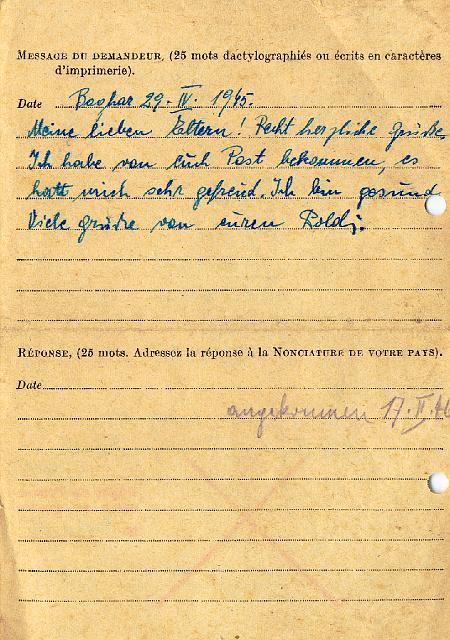 MESSAGE DU DEMANDEUR, (25 mots dactylographiés ou écrits en caractères
d'imprimerie).
Date Baghar 29-IV. 1945.
Meine lieben Eltern! Recht herzliche grüße.
Ich habe von euch Post bekommen, es
hatt mich sehr gefreid. Ich bin gesund
Viele grüße von euren Poldi.
RÉPONSE, (25 mots. Adressez la réponse à la NONCIATURE DE VOTRE PAYS).
Date
angekommen 17.II.46